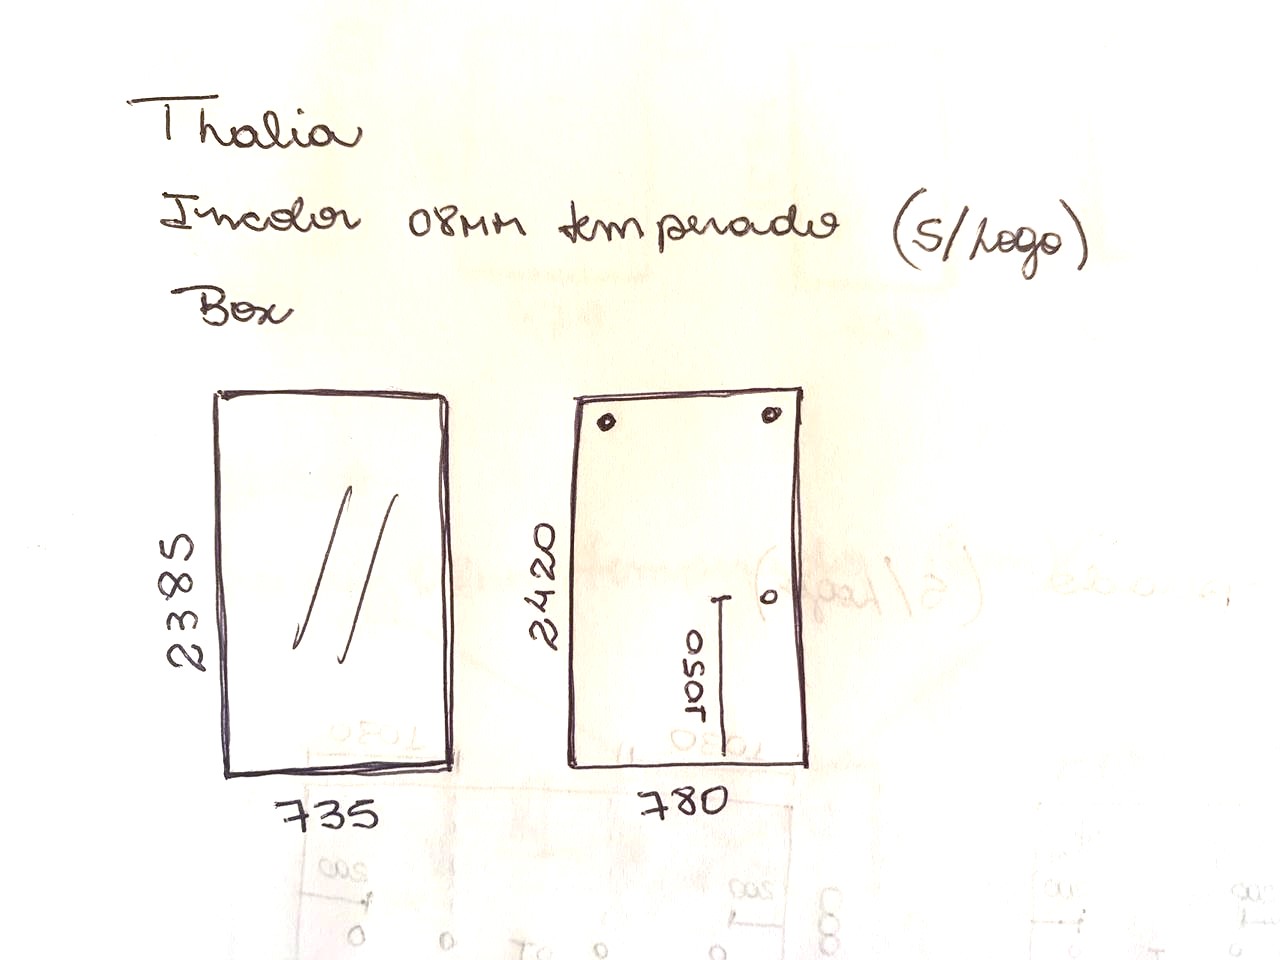 Thalia
Incolor 08MM temperado (S/Logo)
Box
2385
735
2420
1050
780